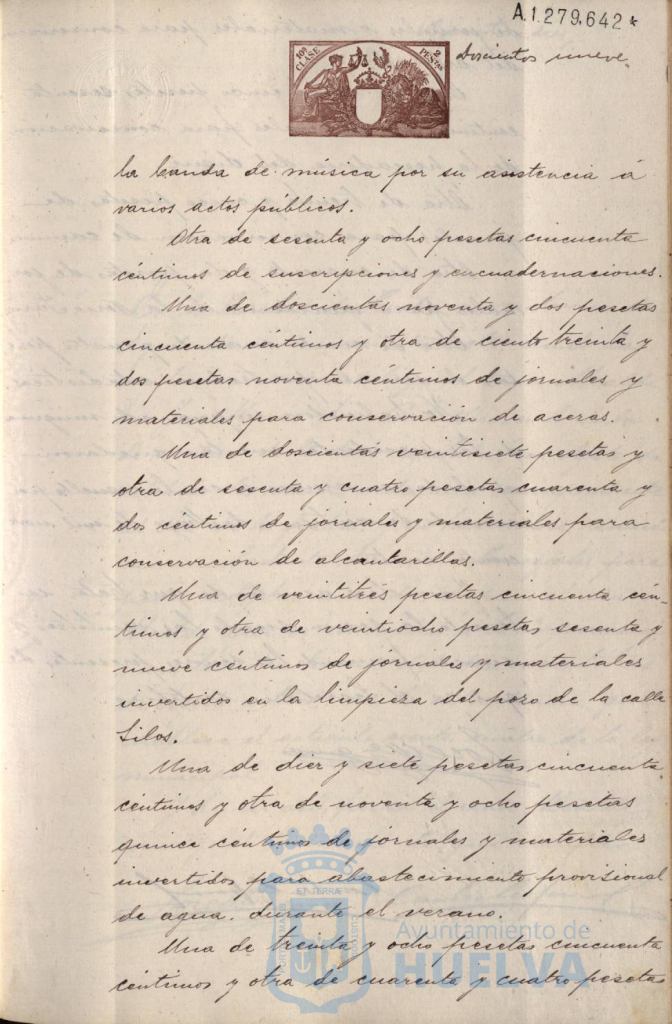 A.1.279.642*
10ª CLASE
2 PESETAS
Doscientos nueve.
la banda de música por su asistencia á
varios actos públicos.
Otra de sesenta y ocho pesetas cincuenta
céntimos de suscripciones y encuadernaciones.
Una de doscientas noventa y dos pesetas
cincuenta céntimos y otra de ciento treinta y
dos pesetas noventa céntimos de jornales y
materiales para conservación de aceras.
Una de doscientas veintisiete pesetas y
otra de sesenta y cuatro pesetas cuarenta y
dos céntimos de jornales y materiales para
conservación de alcantarillas.
Una de veintitrés pesetas cincuenta cén-
timos y otra de veintiocho pesetas sesenta y
nueve céntimos de jornales y materiales
invertidos en la limpieza del pozo de la calle
Silos.
Una de diez y siete pesetas cincuenta
céntimos y otra de noventa y ocho pesetas
quince céntimos de jornales y materiales
invertidos para abastecimiento provisional
de agua durante el verano.
Una de treinta y ocho pesetas cincuenta
céntimos y otra de cuarenta y cuatro pesetas
ET TERRÆ
Ayuntamiento de
HUELVA